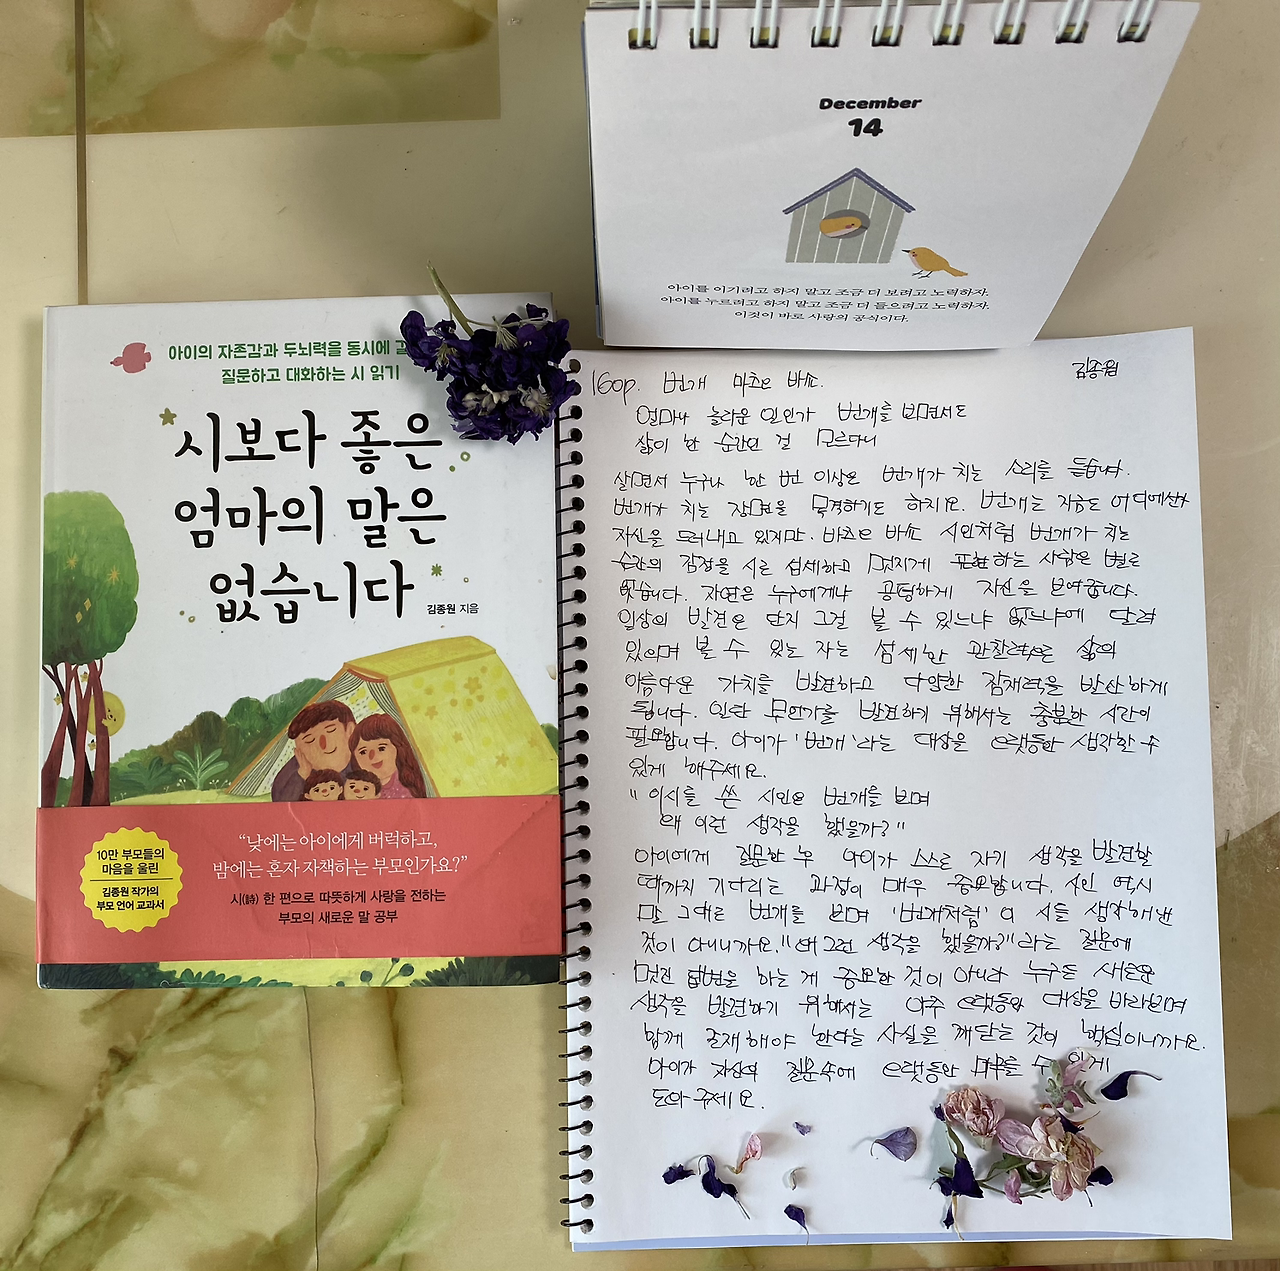 December
14
아이를 이기려고 하지 말고 조금 더 보려고 노력하자.
아이를 누르려고 하지 말고 조금 더 들으려고 노력하자.
이것이 바로 사랑의 공식이다.
아이의 자존감과 두뇌력을 동시에
질문하고 대화하는 시 읽기
시보다 좋은
엄마의 말은
없습니다
김종원 지음
“낮에는 아이에게 버럭하고,
밤에는 혼자 자책하는 부모인가요?”
시(詩) 한 편으로 따뜻하게 사랑을 전하는
부모의 새로운 말 공부
10만 부모들의
마음을 울린
김종원 작가의
부모 언어 교과서
김종원
160p. 번개 마츠오 바쇼.
얼마나 놀라운 일인가 번개를 보면서도
삶이 한 순간인 걸 모르다니
살면서 누구나 한 번 이상은 번개가 치는 소리를 듣습니다.
번개가 치는 장면을 목격하기도 하지요. 번개는 지금도 어디에선가
자신을 드러내고 있지만. 마츠오 바쇼 시인처럼 번개가 치는
순간의 감정을 시로 섬세하고 멋지게 표현하는 사람은 별로
없습니다. 자연은 누구에게나 공평하게 자신을 보여줍니다.
일상의 발견은 단지 그걸 볼 수 있느냐 없느냐에 달려
있으며 볼 수 있는 자는 섬세한 관찰력으로 삶의
아름다운 가치를 발견하고 다양한 잠재력을 발산하게
됩니다. 일단 무언가를 발견하기 위해서는 충분한 시간이
필요합니다. 아이가 '번개'라는 대상을 오랫동안 생각할 수
있게 해주세요.
"이시를 쓴 시인은 번개를 보며
왜 이런 생각을 했을까?"
아이에게 질문한 후 아이가 스스로 자기 생각을 발견할
때까지 기다리는 과정이 매우 중요합니다. 시인 역시
말 그대로 번개를 보며 '번개처럼' 이 시를 생각해낸
것이 아니니까요. "왜 그런 생각을 했을까?"라는 질문에
멋진 답변을 하는 게 중요한 것이 아니라 누구든 새로운
생각을 발견하기 위해서는 아주 오랫동안 대상을 바라보며
함께 존재해야 한다는 사실을 깨닫는 것이 핵심이니까요.
아이가 자신의 질문속에 오랫동안 머무를 수 있게
도와주세요.